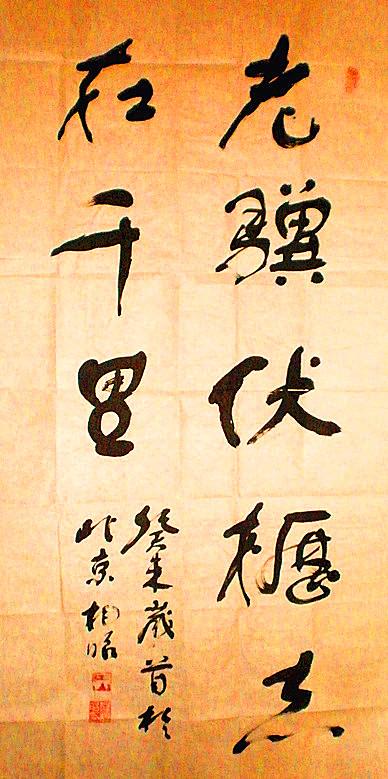 老骥伏櫪志
在千里
癸未歲首於
北京柏